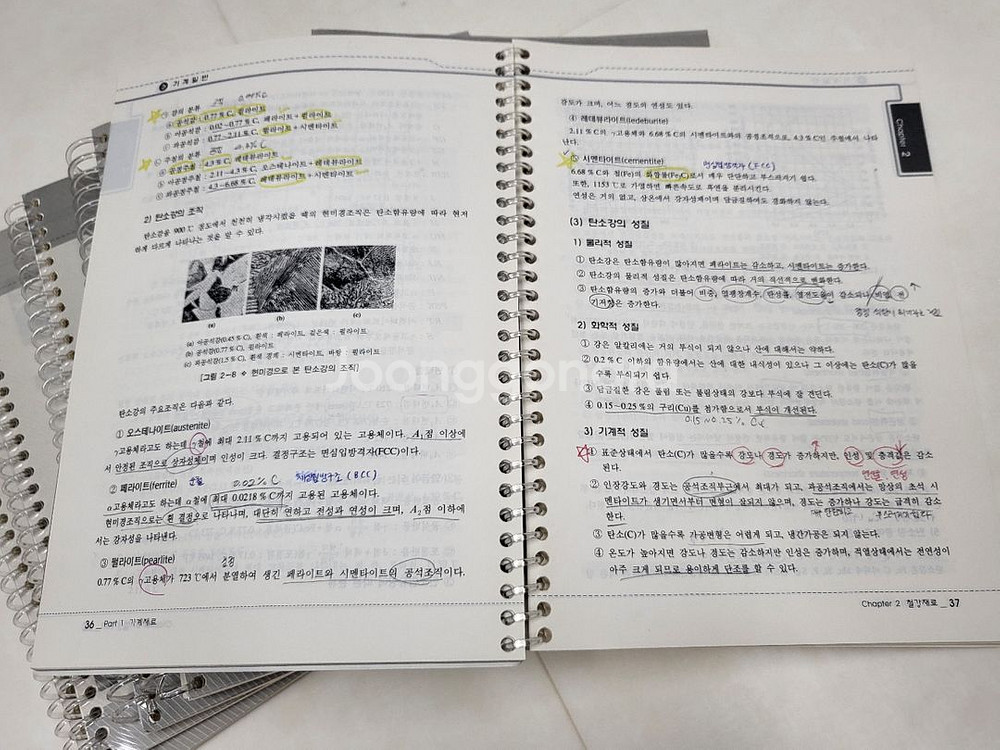 기계일반
① 강의 분류
ⓐ 공석강 : 0.77% C, 펄라이트
ⓑ 아공석강 : 0.02~0.77% C, 페라이트 + 펄라이트
ⓒ 과공석강 : 0.77~2.11% C, 펄라이트 + 시멘타이트
② 주철의 분류
ⓐ 공정주철 : 4.3% C, 레데뷰라이트
ⓑ 아공정주철 : 2.11~4.3% C, 오스테나이트 + 레데뷰라이트
ⓒ 과공정주철 : 4.3~6.68% C, 레데뷰라이트 + 시멘타이트
2) 탄소강의 조직
탄소강을 900℃ 정도에서 천천히 냉각시켰을 때의 현미경조직은 탄소함유량에 따라 현저
하게 다르게 나타나는 것을 알 수 있다.
(a) (b) (c)
(a) 아공석강(0.45% C), 흰색 : 페라이트, 검은색 : 펄라이트
(b) 공석강(0.77% C), 펄라이트
(c) 과공석강(1.5% C), 흰색 경계 : 시멘타이트, 바탕 : 펄라이트
[그림 2-8 ❖ 현미경으로 본 탄소강의 조직]
탄소강의 주요조직은 다음과 같다.
① 오스테나이트(austenite)
γ고용체라고도 하는데 γ철에 최대 2.11% C까지 고용되어 있는 고용체이다. A₁점 이상에
서 안정된 조직으로 상자성체이며 인성이 크다. 결정구조는 면심입방격자(FCC)이다.
② 페라이트(ferrite) 순철 0.02% C 체심입방구조 (BCC)
α고용체라고도 하는데 α철에 최대 0.0218% C까지 고용된 고용체이다.
현미경조직으로는 흰 결정으로 나타나며, 대단히 연하고 전성과 연성이 크며, A₂점 이하에
서는 강자성을 나타낸다.
③ 펄라이트(pearlite)
0.77% C의 γ고용체가 723℃에서 분열하여 생긴 페라이트와 시멘타이트의 공석조직이다.
36 _ Part 1 기계재료
강도가 크며, 어느 정도의 연성도 있다.
④ 레데뷰라이트(ledeburite)
2.11% C의 γ고용체와 6.68% C의 시멘타이트와의 공정조직으로, 4.3% C인 주철에서 나타
난다.
⑤ 시멘타이트(cementite) 면심입방격자 (FCC)
6.68% C와 철(Fe)의 화합물(Fe₃C)로서 매우 단단하고 부스러지기 쉽다.
또한, 1153℃로 가열하면 빠른속도로 흑연을 분리시킨다.
연성은 거의 없고, 상온에서 강자성체이며 담금질하여도 경화하지 않는다.
Chapter 2
(3) 탄소강의 성질
1) 물리적 성질
① 탄소강은 탄소함유량이 많아지면 페라이트는 감소하고, 시멘타이트는 증가한다.
② 탄소강의 물리적 성질은 탄소함유량에 따라 거의 직선적으로 변화한다.
③ 탄소함유량의 증가와 더불어 비중, 열팽창계수, 탄성률, 열전도율이 감소되나 비열, 전
기저항은 증가한다.
2) 화학적 성질
① 강은 알칼리에는 거의 부식이 되지 않으나 산에 대해서는 약하다.
② 0.2% C 이하의 함유강에서는 산에 대한 내식성이 있으나 그 이상에는 탄소(C)가 많을
수록 부식되기 쉽다.
③ 담금질한 강은 풀림 또는 불림상태의 강보다 부식에 잘 견딘다.
④ 0.15~0.25% C의 구리(Cu)를 첨가함으로서 부식이 개선된다.
0.15 ~ 0.25% Cu
3) 기계적 성질
① 표준상태에서 탄소(C)가 많을수록 강도나 경도가 증가하지만, 인성 및 충격값은 감소
된다.
② 인장강도와 경도는 공석조직부근에서 최대가 되고, 과공석조직에서는 망상의 조석 시
멘타이트가 생기면서부터 변형이 잘되지 않으며, 경도는 증가하나 강도는 급격히 감소
한다.
③ 탄소(C)가 많을수록 가공변형은 어렵게 되고, 냉간가공은 되지 않는다.
④ 온도가 높아지면 강도나 경도는 감소하지만 인성은 증가하며, 적열상태에서는 전연성이
아주 크게 되므로 용이하게 단조를 할 수 있다.
Chapter 2 철강재료 _ 37